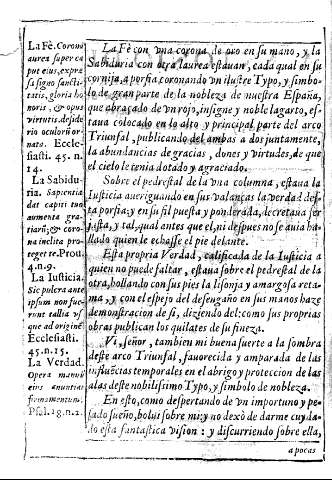 La Fè. Corona
aurea super ca
put eius, expre
sa signo sancti-
tatis, gloria ho
noris, & opus
virtutis, deside
rio oculorũ or-
nato. Eccle-
siasti. 45. n.
14.
La Sabidu-
ria. Sapientia
dat capiti tuo
aumenta gra-
tiarũ; & coro-
na inclita pro-
teget te. Prou.
4. n. 9.
La Iusticia.
Sic pulcra ante
ipsum non fue-
runt tallia vs
que ad originē
Ecclesiasti.
45. n. 15.
La Verdad.
Opera manuū
eius anuntiat
firmamentum.
Psal. 18. n. 2.
La Fè con vna corona de oro en su mano, y la
Sabiduria con otra laurea estauan, cada qual en su
cornija, a porfia coronando vn ilustre Typo, y simbo-
lo de gran parte de la nobleza de nuestra España,
que abrasado de vn rojo, insigne y noble lagarto, es-
taua colocado en lo alto y principal parte del arco
Triunfal, publicando del ambas a dos juntamente,
la abundancias de gracias, dones y virtudes, de que
el cielo le tenia dotado y agraciado.
Sobre el pedrestal de la vna columna, estaua la
Iusticia aueriguando en sus valanças la verdad des-
ta porfia: y en su fil puesta y ponderada, decretaua ser
justa, y tal, qual antes que el, ni despues no se auia ha-
llado quien le echasse el pie delante.
Esta propria Verdad, calificada de la Iusticia a
quien no puede faltar, estaua sobre el pedrestal de la
otra, hollando con sus pies la lisonja y amargosa reta-
ma, y con el espejo del desengaño en sus manos haze
demonstracion de si, diziendo del: como sus proprias
obras publican los quilates de su fineza.
Vi, señor, tambien mi buena suerte a la sombra
deste arco Triunfal, fauorecida y amparada de las
influēcias temporales en el abrigo y proteccion de las
alas deste nobilissimo Typo, y simbolo de nobleza.
En esto, como despertando de vn importuno y pe-
sado sueño, bolui sobre mi: y no dexò de darme cuyda-
do esta fantastica vision: y discurriendo sobre ella,
a pocas